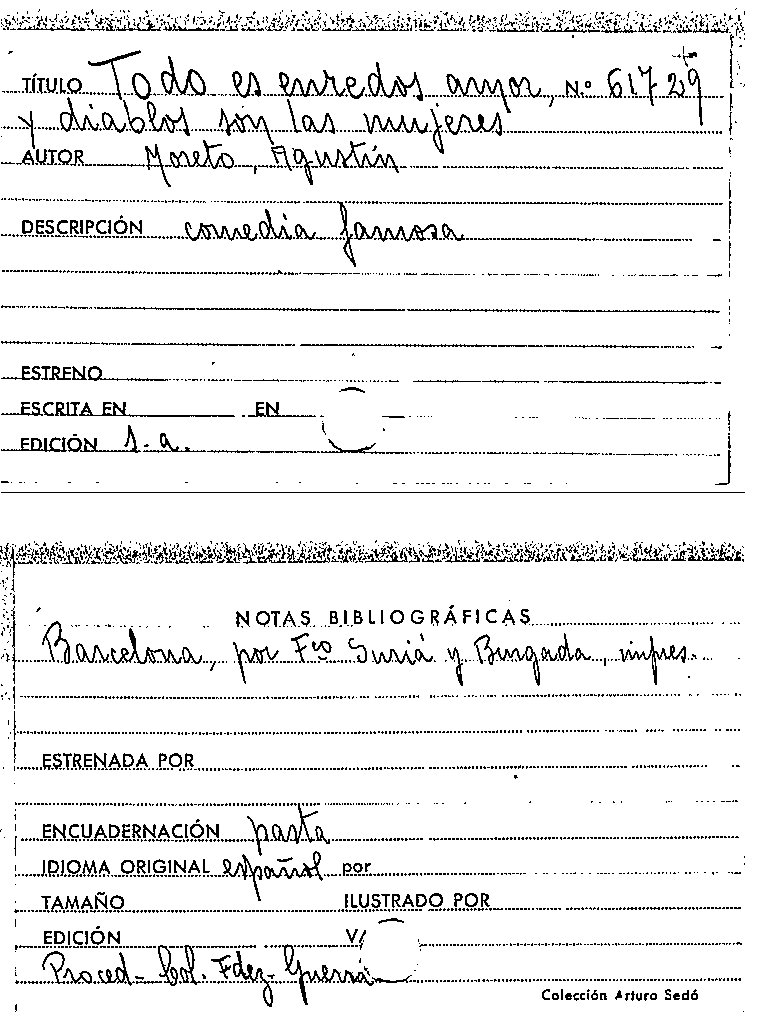 TÍTULO Todo es enredos amor, N.º 61729
y diablos son las mujeres
AUTOR Moreto, Agustín
DESCRIPCIÓN comedia famosa
ESTRENO
ESCRITA EN EN
EDICIÓN s.a.
NOTAS BIBLIOGRÁFICAS
Barcelona, por Fco Suriá y Burgada, impres.
ESTRENADA POR
ENCUADERNACIÓN pasta
IDIOMA ORIGINAL español por
TAMAÑO ILUSTRADO POR
EDICIÓN V/
Proced- Col. Fdez- Guerra
Colección Arturo Sedó